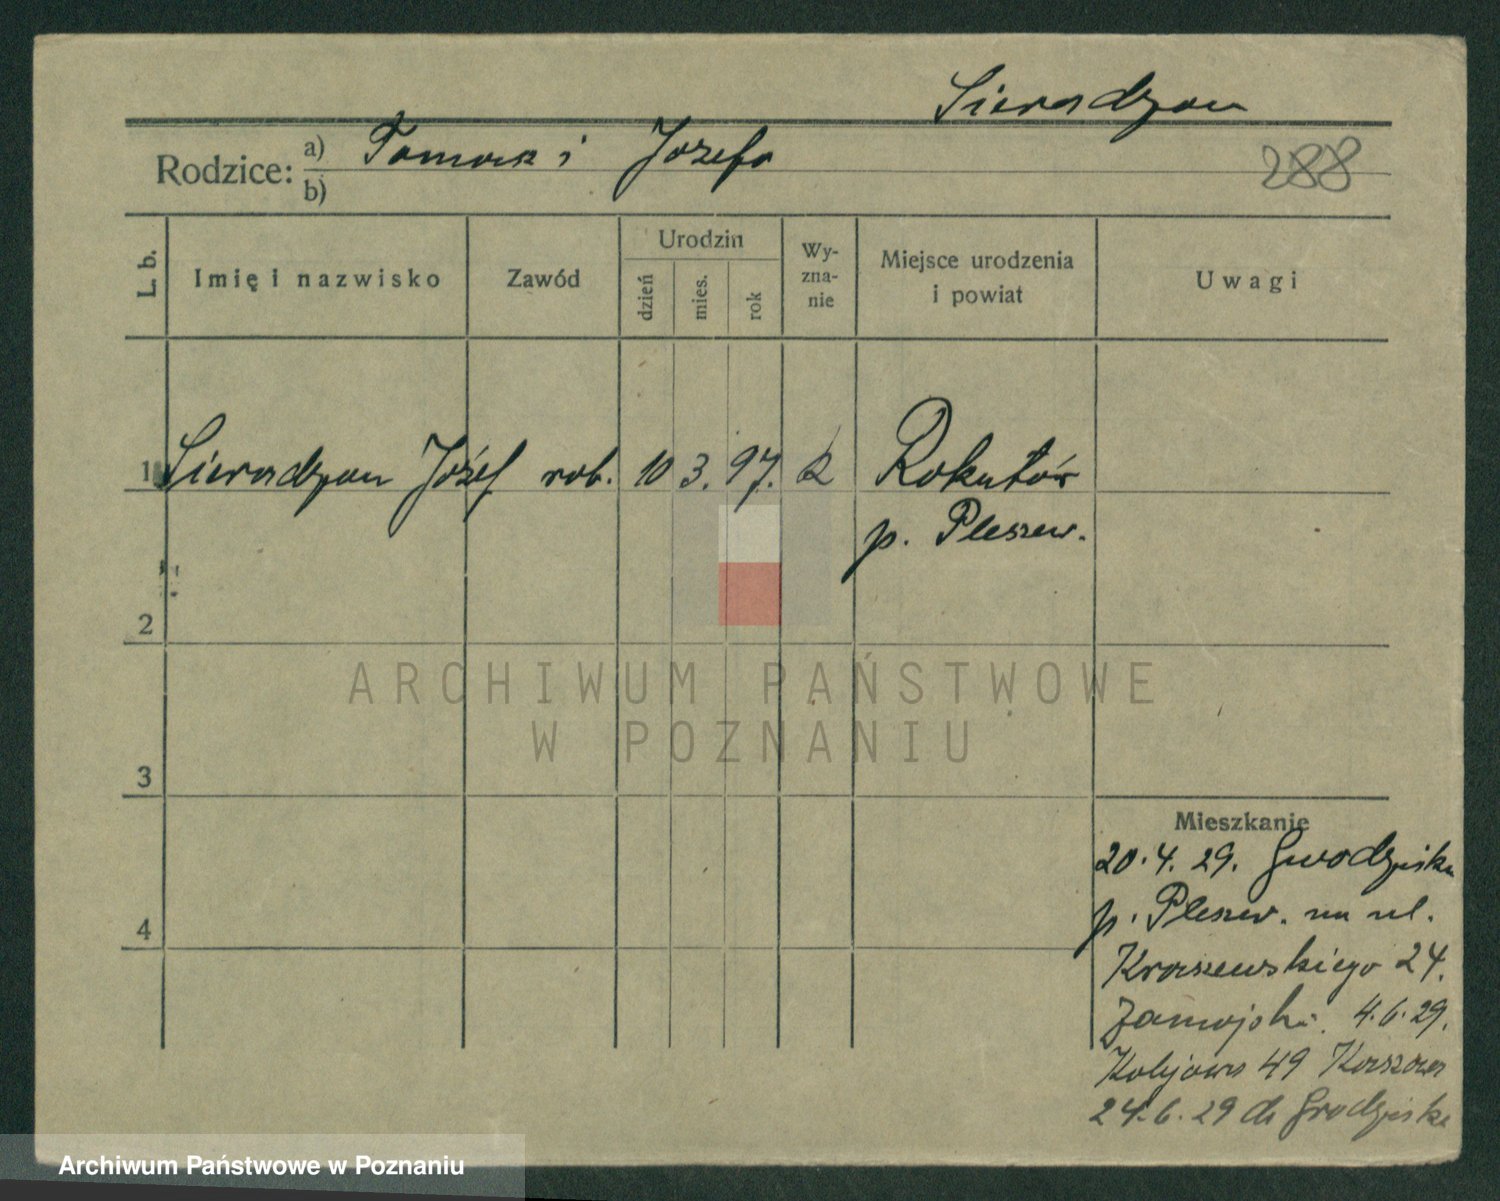 Sieradzan
Rodzice: a) Tomasz i Józefa
b)
288
L. b. Imię i nazwisko Zawód Urodzin dzień mies. rok Wy-zna-nie Miejsce urodzenia i powiat Uwagi
1 Sieradzan Józef rob. 10 3. 97. k Rokutów
p. Pleszew.
2
ARCHIWUM PAŃSTWOWE
W POZNANIU
3
Mieszkanie
20.4.29. Grodziska
p. Pleszew. na ul.
4
Kraszewskiego 24.
Zamojski. 4.6.29.
49
24.6.29 do Grodziska
Archiwum Państwowe w Poznaniu